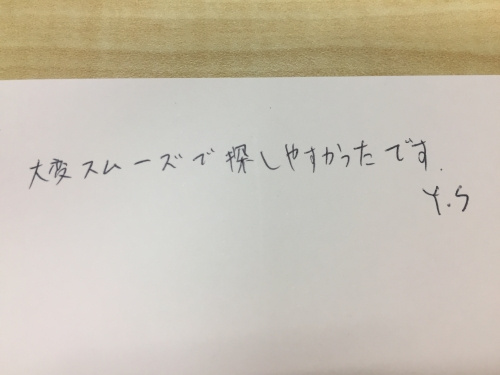 大変スムーズで探しやすかったです.
Y.S